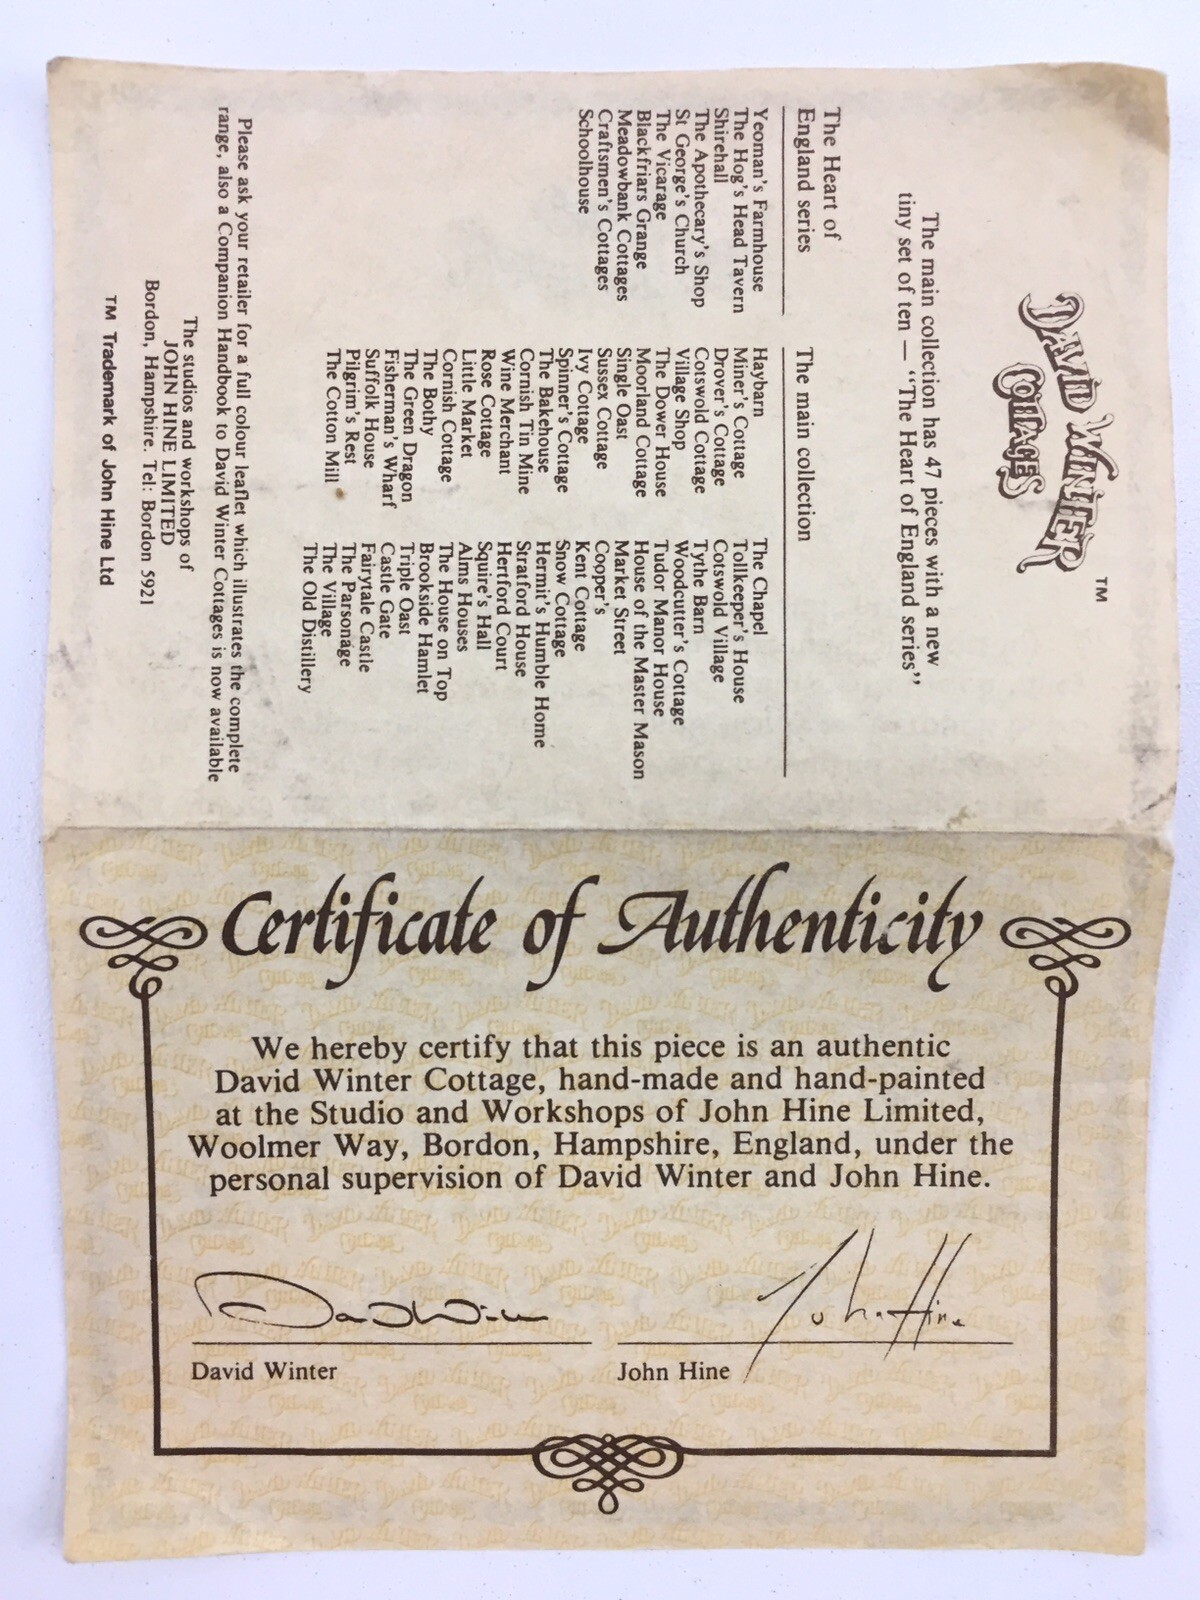 DAVID WINTER
COTTAGES
TM
The main collection has 47 pieces with a new
tiny set of ten — “The Heart of England series”
The Heart of
England series
Yeoman's Farmhouse
The Hog's Head Tavern
Shirehall
The Apothecary's Shop
St George's Church
The Vicarage
Blackfriars Grange
Meadowbank Cottages
Craftsmen's Cottages
Schoolhouse
The main collection
Haybarn
Miner's Cottage
Drover's Cottage
Cotswold Cottage
Village Shop
The Dower House
Moorland Cottage
Single Oast
Sussex Cottage
Ivy Cottage
Spinner's Cottage
The Bakehouse
Cornish Tin Mine
Wine Merchant
Rose Cottage
Little Market
Cornish Cottage
The Bothy
The Green Dragon
Fisherman's Wharf
Suffolk House
Pilgrim's Rest
The Cotton Mill
The Chapel
Tollkeeper's House
Cotswold Village
Tythe Barn
Woodcutter's Cottage
Tudor Manor House
House of the Master Mason
Market Street
Cooper's
Kent Cottage
Snow Cottage
Hermit's Humble Home
Stratford House
Hertford Court
Squire's Hall
Alms Houses
The House on Top
Brookside Hamlet
Triple Oast
Castle Gate
Fairytale Castle
The Parsonage
The Village
The Old Distillery
Please ask your retailer for a full colour leaflet which illustrates the complete
range, also a Companion Handbook to David Winter Cottages is now available
The studios and workshops of
JOHN HINE LIMITED
Bordon, Hampshire. Tel: Bordon 5921
TM Trademark of John Hine Ltd
Certificate of Authenticity
We hereby certify that this piece is an authentic
David Winter Cottage, hand-made and hand-painted
at the Studio and Workshops of John Hine Limited,
Woolmer Way, Bordon, Hampshire, England, under the
personal supervision of David Winter and John Hine.
David Winter
John Hine
David Winter
John Hine